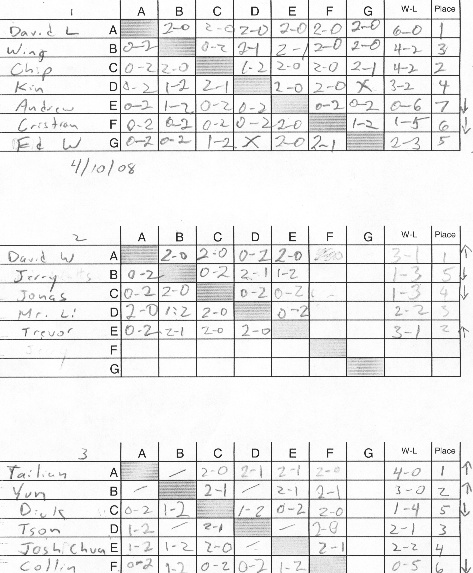 1 A B C D E F G W-L Place
David L A 2-0 2-0 2-0 2-0 2-0 2-0 6-0 1
Wing B 0-2 0-2 2-1 2-1 2-0 2-0 4-2 3
Chip C 0-2 2-0 1-2 2-0 2-0 2-1 4-2 2
Kin D 0-2 1-2 2-1 2-0 2-0 X 3-2 4
Andrew E 0-2 1-2 0-2 0-2 0-2 0-2 0-6 7 ↓
Cristian F 0-2 0-2 0-2 0-2 2-0 1-2 1-5 6 ↓
Ed W G 0-2 0-2 1-2 X 2-0 2-1 2-3 5
4/10/08
2 A B C D E F G W-L Place
David W A 2-0 2-0 0-2 2-0 3-1 1 ↑
Jerry B 0-2 0-2 2-1 1-2 1-3 5 ↓
Jonas C 0-2 2-0 0-2 0-2 1-3 4 ↓
Mr. Li D 2-0 1-2 2-0 0-2 2-2 3
Trevor E 0-2 2-1 2-0 2-0 3-1 2 ↑
F
G
3 A B C D E F G W-L Place
A 2-0 2-1 2-1 2-0 4-0 1 ↑
Yun B 2-1 2-1 2-1 3-0 2 ↑
C 0-2 1-2 1-2 0-2 2-0 1-4 5 ↓
Tson D 1-2 2-1 2-0 2-1 3
Josh Chua E 1-2 1-2 2-0 2-1 2-2 4
Collin F 0-2 1-2 0-2 0-2 1-2 0-5 6 ↓